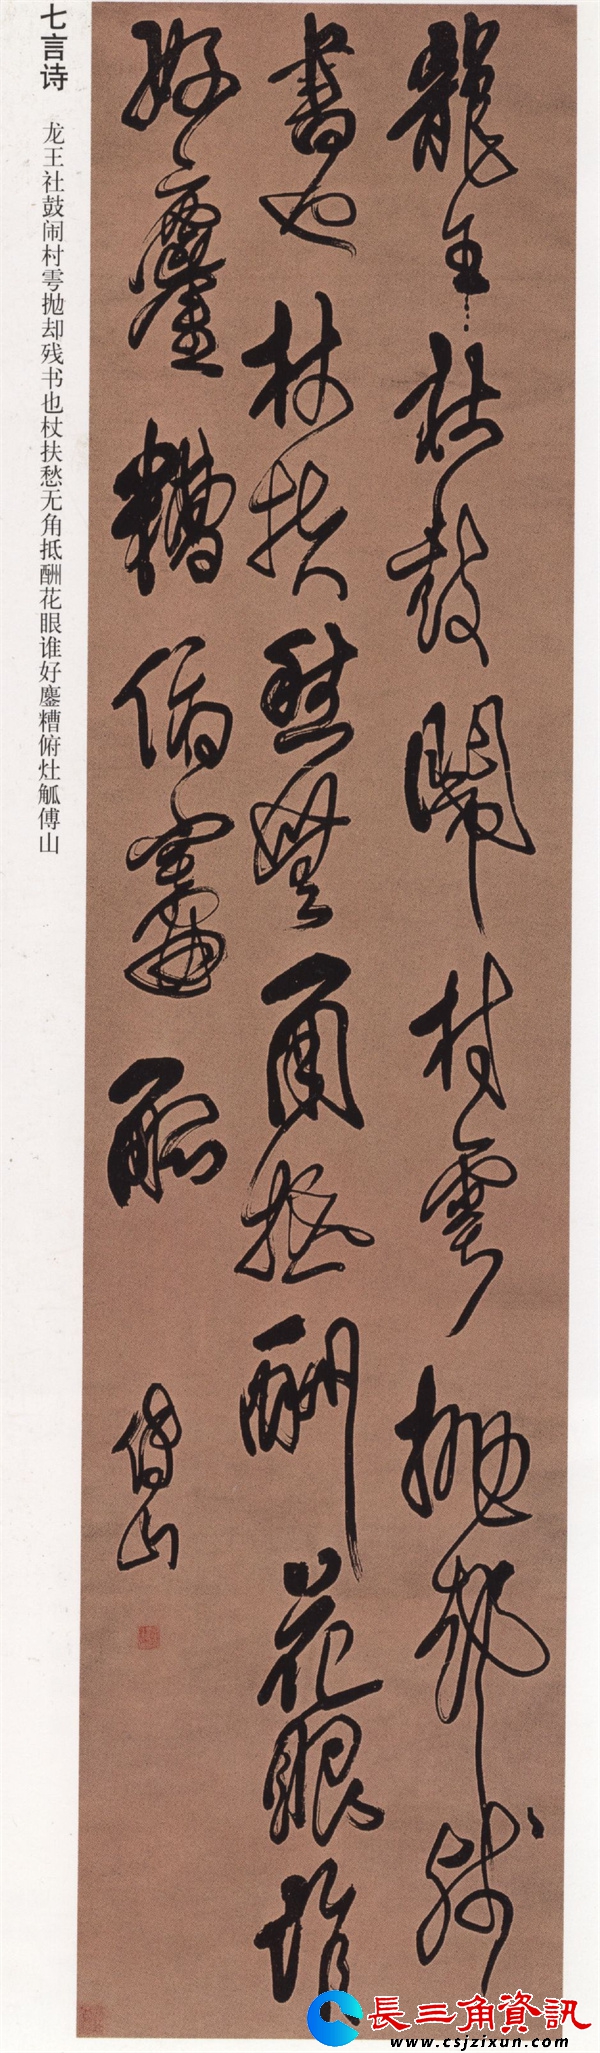 七言诗
龙王社鼓闹村雩抛却残书也杖扶愁无角抵酬花眼谁好鏖糟俯灶觚傅山
龍王社鼓鬧村雩抛却残
書也杖扶愁無角抵酬花眼誰
好鏖糟俯竈觚
傅山
長三角資訊
www.csjzixun.com